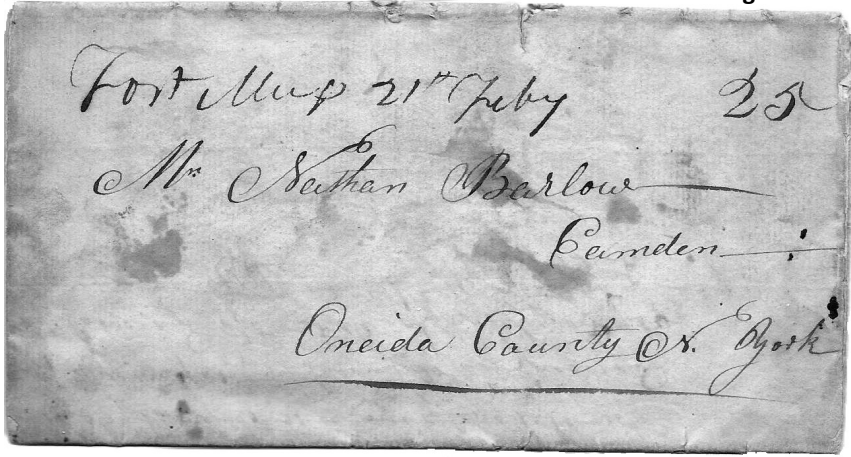 Fort Meigs 21st Feby 25
Mr Nathan Barlow
Camden
Oneida County N. York